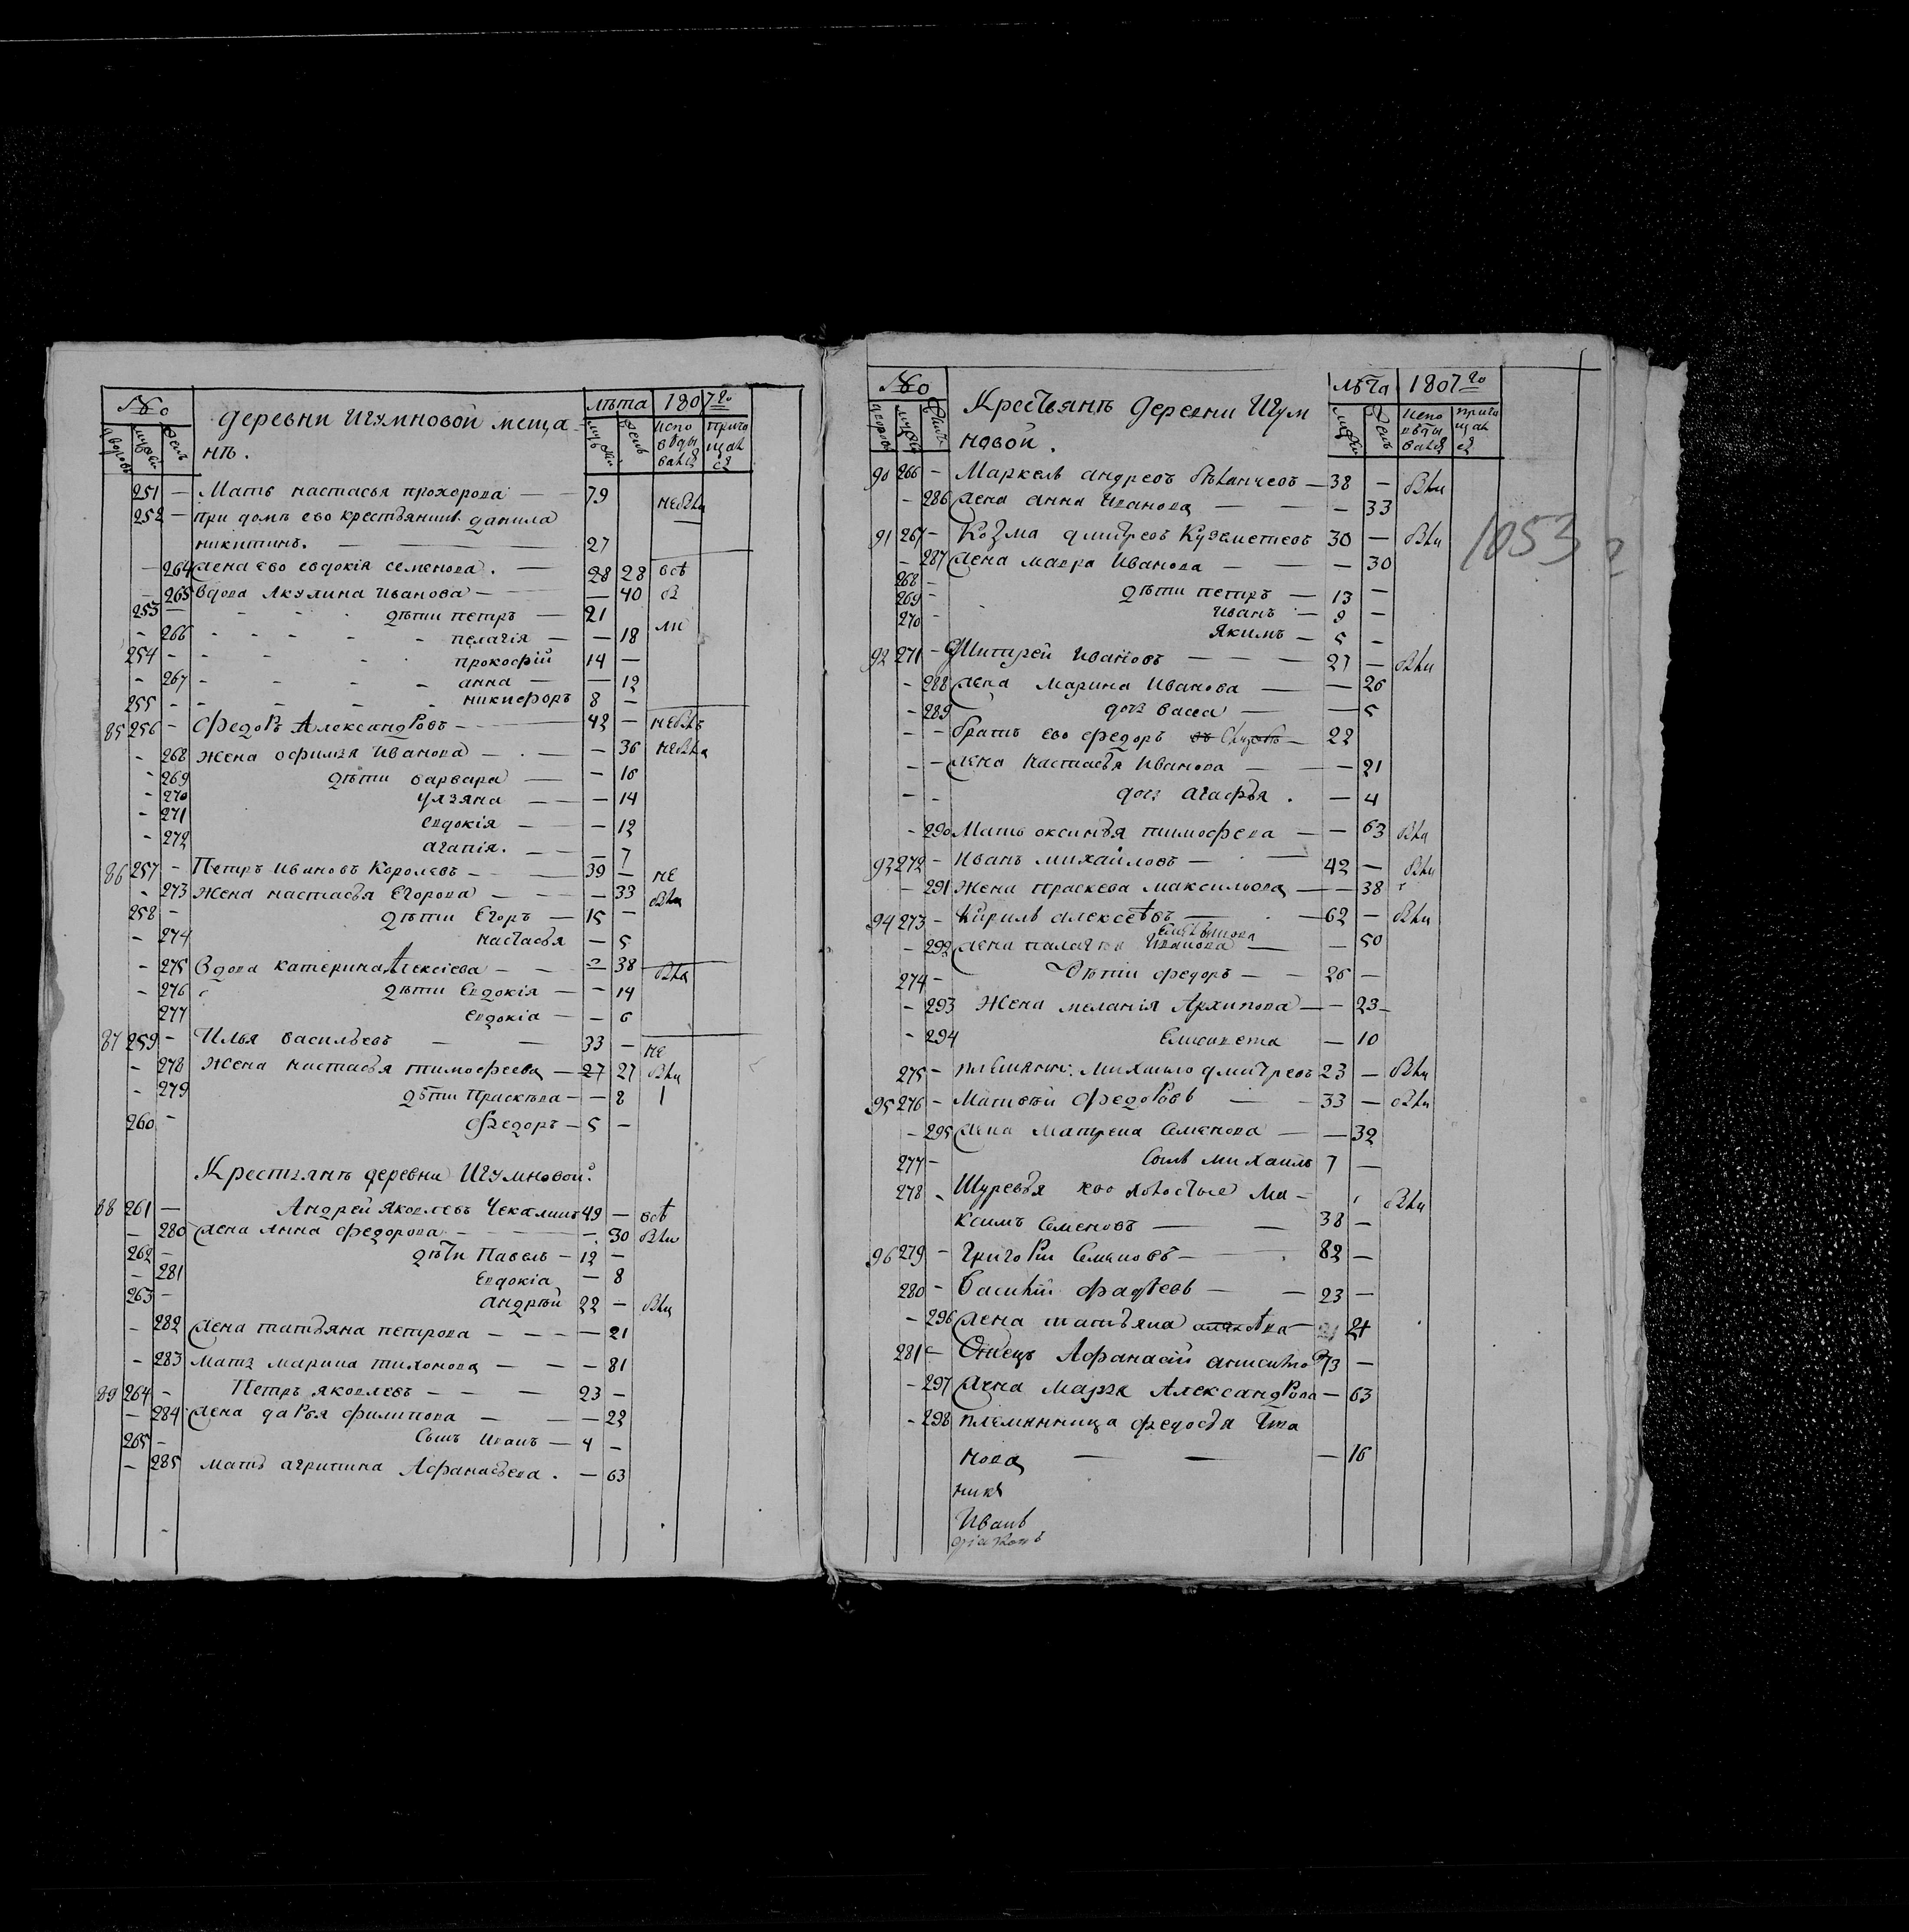 № деревни Игумновой меща лѣта 1807 го
дворовъ мужеск женск нъ. мужеск женск испо вѣды вался прича щался
251 — Мать настасья прохорова — 79
252 — при домѣ ево крестьянинъ данила
никитинъ. — 27
— 264 жена ево евдокія семенова. — 28 28 всѣ
— 265 вдова Акулина Иванова — — 40
253 — дѣти петръ — 21
— 266 пелагія — — 18
254 — прокофій 14 —
— 267 анна — — 12
255 — никифоръ 8 —
85 256 — Федоръ Александровъ — 42 —
— 268 жена офимья Иванова — — 36
— 269 дѣти варвара — — 16
— 270 ульяна — — 14
— 271 евдокія — — 12
— 272 агапія. — — 7
86 257 — Петръ Ивановъ Королевъ — 39 — не
— 273 жена настасья Егорова — — 33
258 — дѣти Егоръ — 15 —
— 274 настасья — 5
— 275 Вдова катерина Алексіева — — 38
— 276 дѣти Евдокія — — 14
277 Евдокіа — — 6
87 259 — Илья васильевъ — 33 — не
— 278 Жена настасья тимофеева — 27 27
— 279 дѣти Прасковья — — 8
260 — Федоръ — 5 —
Крестьянъ деревни Игумновой.
88 261 — Андрей Яковлевъ Чекалинъ 49 — всѣ
— 280 жена Анна федорова — — 30
262 — дѣти Павелъ — 12 —
— 281 Евдокіа — 8
263 — андрѣй 22 —
— 282 жена татьяна петрова — — 21
— 283 мать марина тихонова — — 81
89 264 — Петръ яковлевъ — 23 —
— 284 жена дарья филипова — — 22
265 — Сынъ Иванъ — 4 —
— 285 мать агрипина Афанасьева. — 63
№ Крестьянъ деревни Игум лѣта 1807 го
дворовъ мужеск женск новой. мужеск женск испо вѣды вался прича щал ся
90 266 — Маркелъ андреевъ — 38 —
— 286 жена анна Иванова — — 33
91 267 — Козма дмитревъ 30 —
— 287 жена мавра Иванова — — 30
268 — дѣти петръ — 13 —
269 — иванъ — 9 —
270 — Якимъ — 5 —
92 271 — Дмитрей Ивановъ — 27 —
— 288 жена марина Иванова — — 26
— 289 дочь васса — — 5
— — братъ ево федоръ — 22
— — жена настасья Иванова — — 21
— — дочь агафья. — 4
— 290 мать оксинья тимофеева — — 63
93 272 — Иванъ михайловъ — 42 —
— 291 жена праскева максимова — — 38
94 273 — Кирилъ алексѣевъ — 62 —
— 292 жена палагія Иванова — — 50
274 — Дѣти федоръ — 26 —
— 293 Жена меланія Архипова — — 23
— 294 Елисавета — 10
275 — племянник. михайло дмитревъ 23 —
95 276 — Матвѣй Федоровъ — 33 —
— 295 жена матрена Семенова — — 32
277 — Сынъ михаилъ 7 —
278 — Шурья ево холостые Ма-
ксимъ Семеновъ — 38 —
96 279 — Григорій Семеновъ — 82 —
280 — Василій фадѣевъ — 23 —
— 296 жена татьяна 21
281 — Отецъ Афанасій 73 —
— 297 жена Марья Александрова — 63
— 298 племянница федосья
нова — — 16
Иванъ
діаконъ
1053